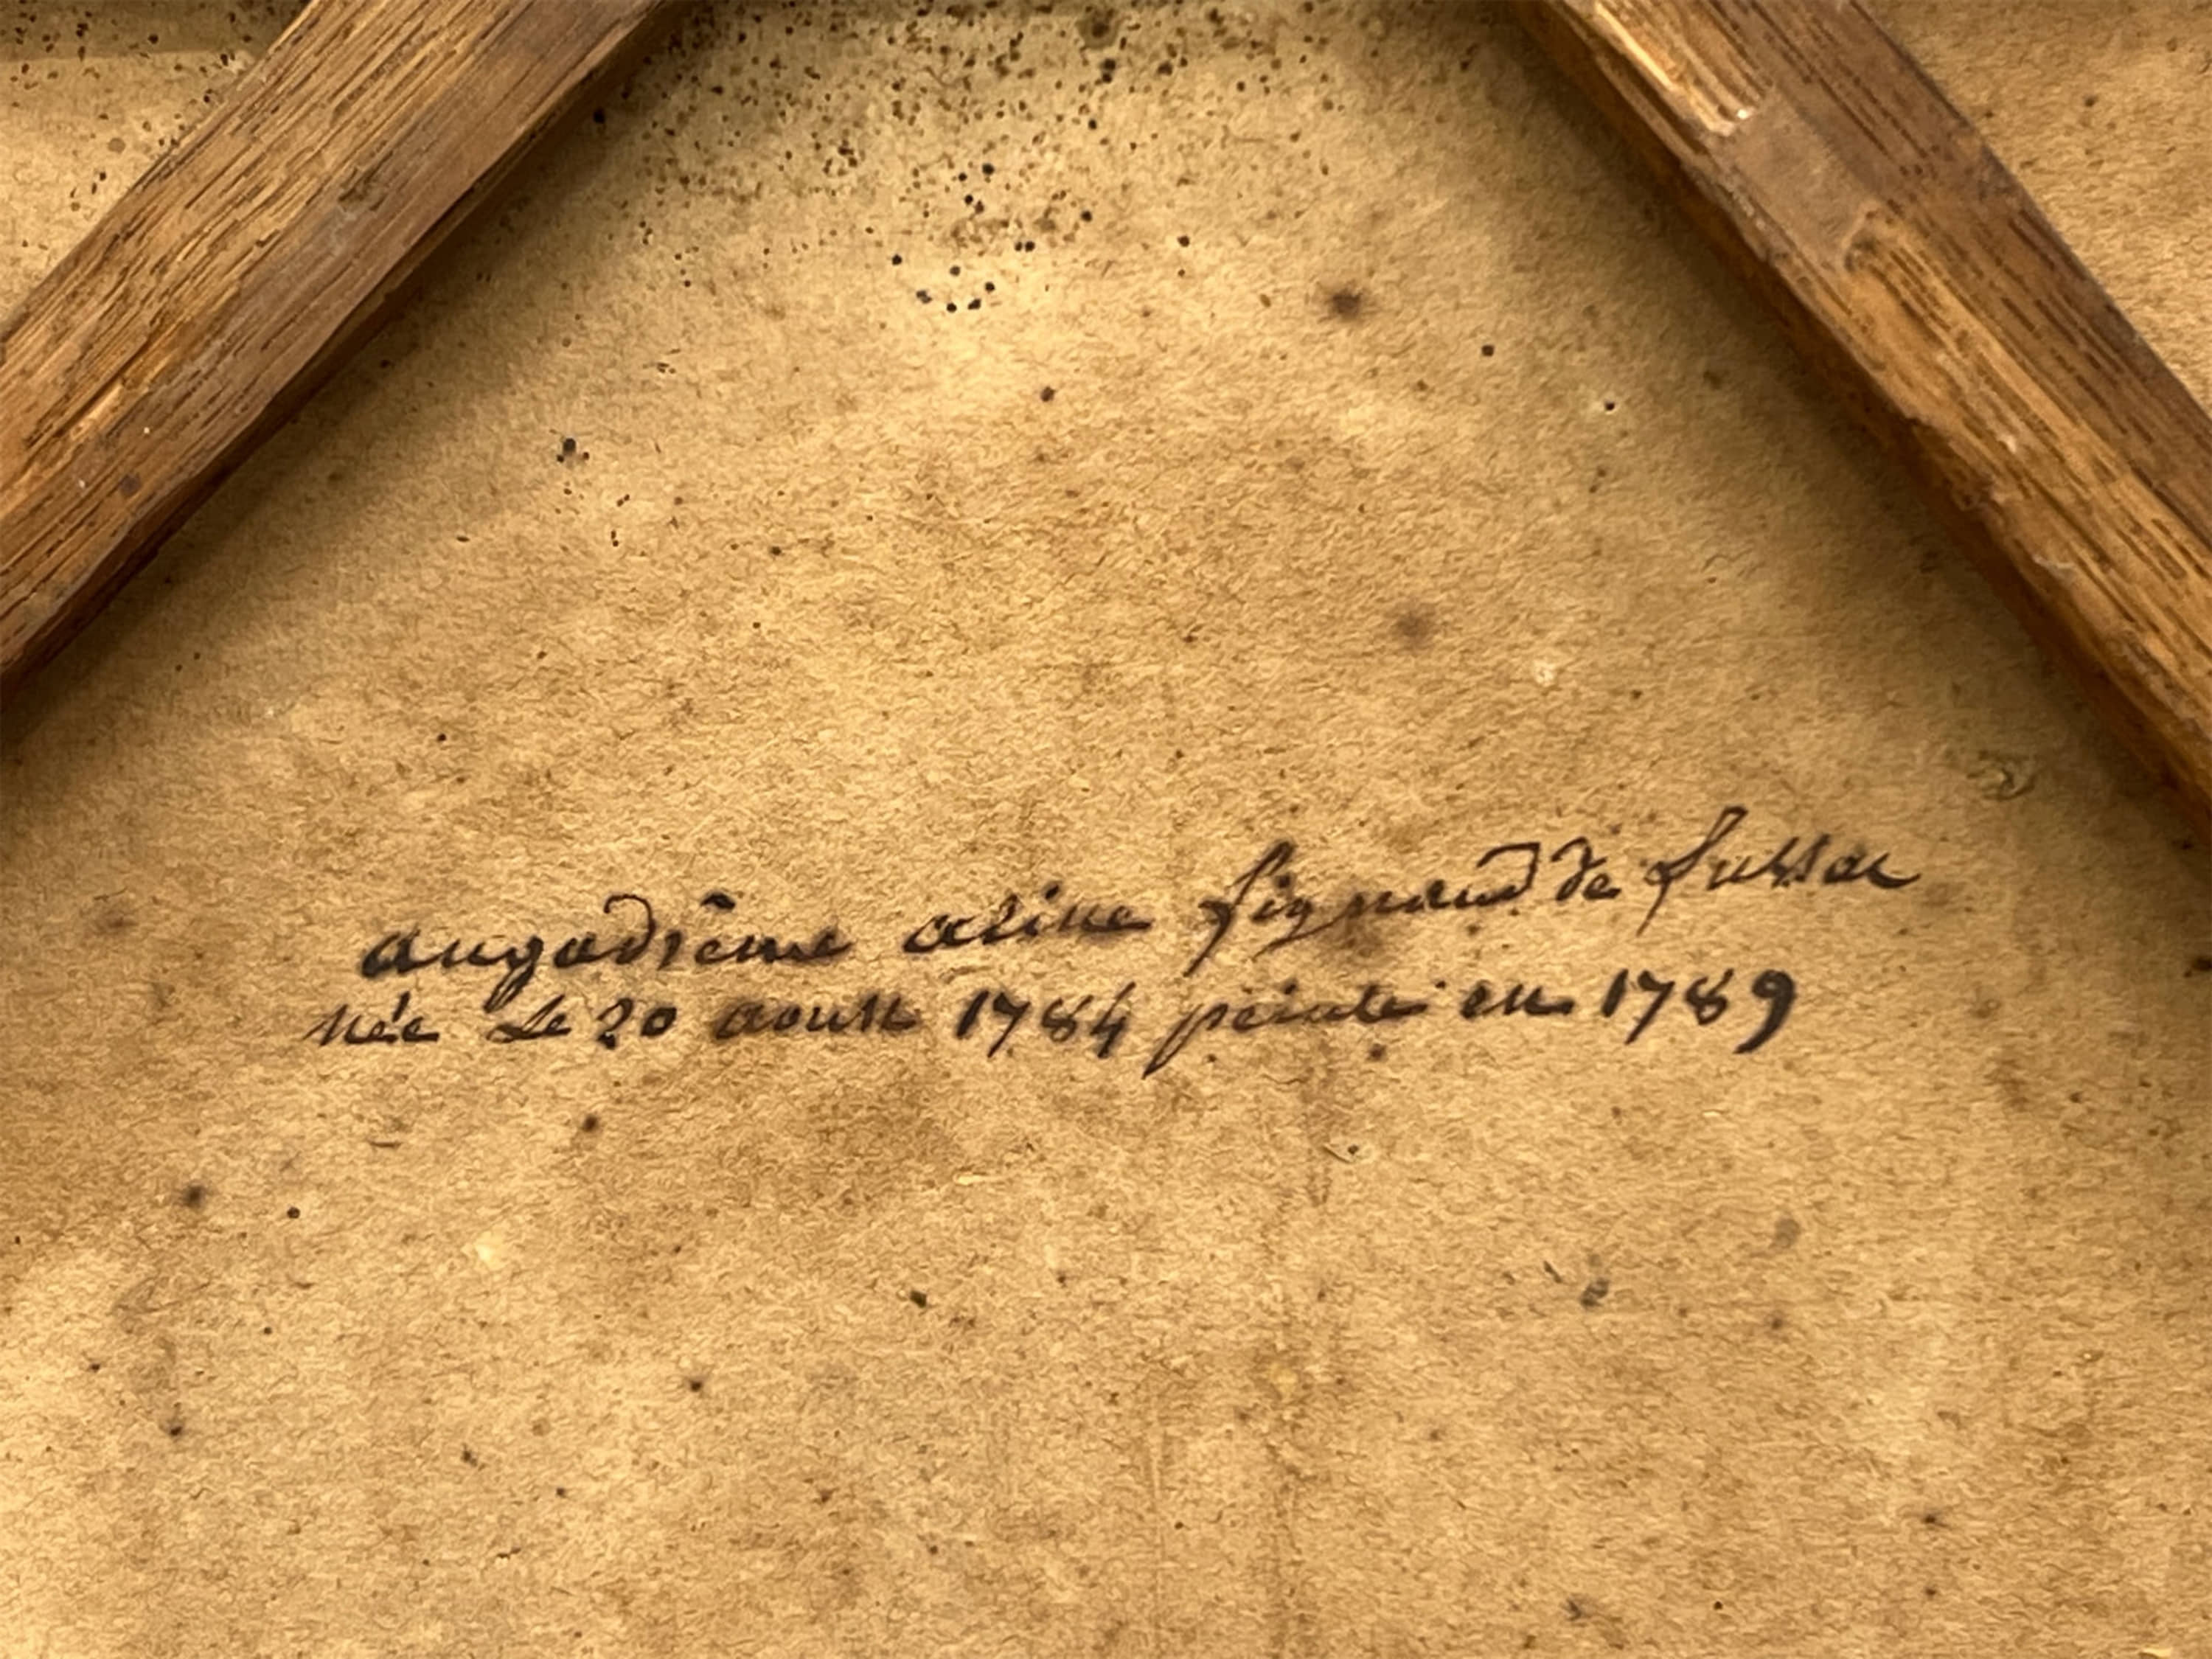 angadrême aline fignaud de fussac
née Le 20 aoust 1784 peinte en 1789